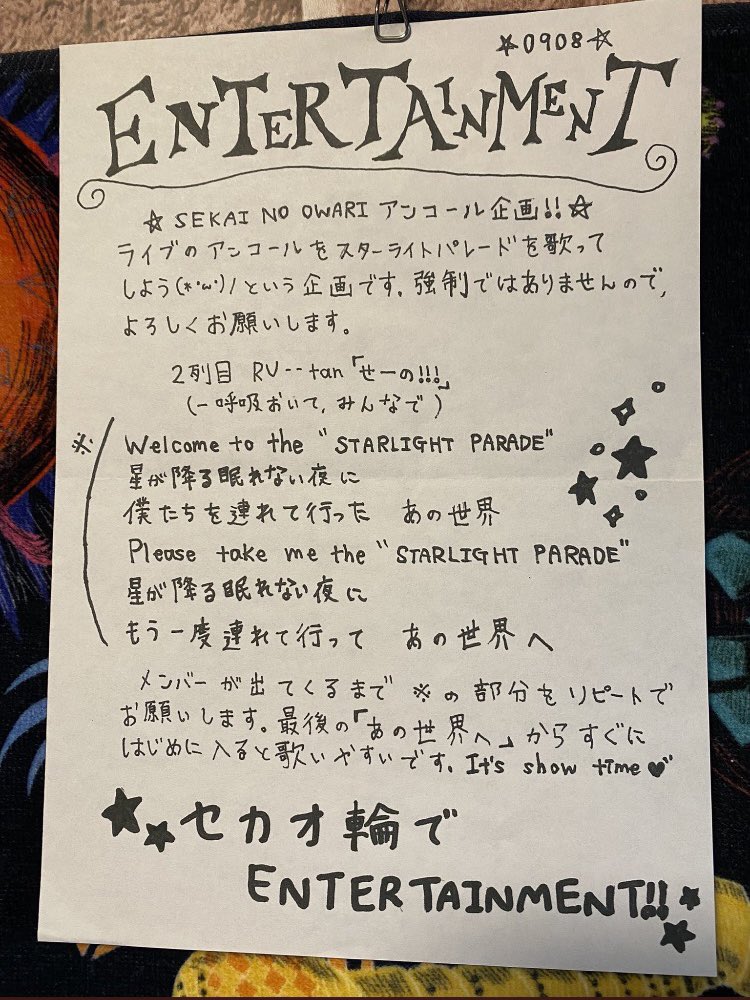 ☆0908☆
ENTERTAINMENT
☆ SEKAI NO OWARI アンコール企画!!☆
ライブのアンコールをスターライトパレードを歌って
しよう(*'ω')/という企画です。強制ではありませんので、
よろしくお願いします。
2列目 RU--tan「せーの!!!」
(一呼吸おいて、みんなで)
※ Welcome to the "STARLIGHT PARADE"
星が降る眠れない夜に
僕たちを連れて行った あの世界
Please take me the "STARLIGHT PARADE"
星が降る眠れない夜に
もう一度連れて行って あの世界へ
メンバーが出てくるまで ※の部分をリピートで
お願いします。最後の「あの世界へ」からすぐに
はじめに入ると歌いやすいです。It's show time♥
★★セカオ輪で
ENTERTAINMENT!!